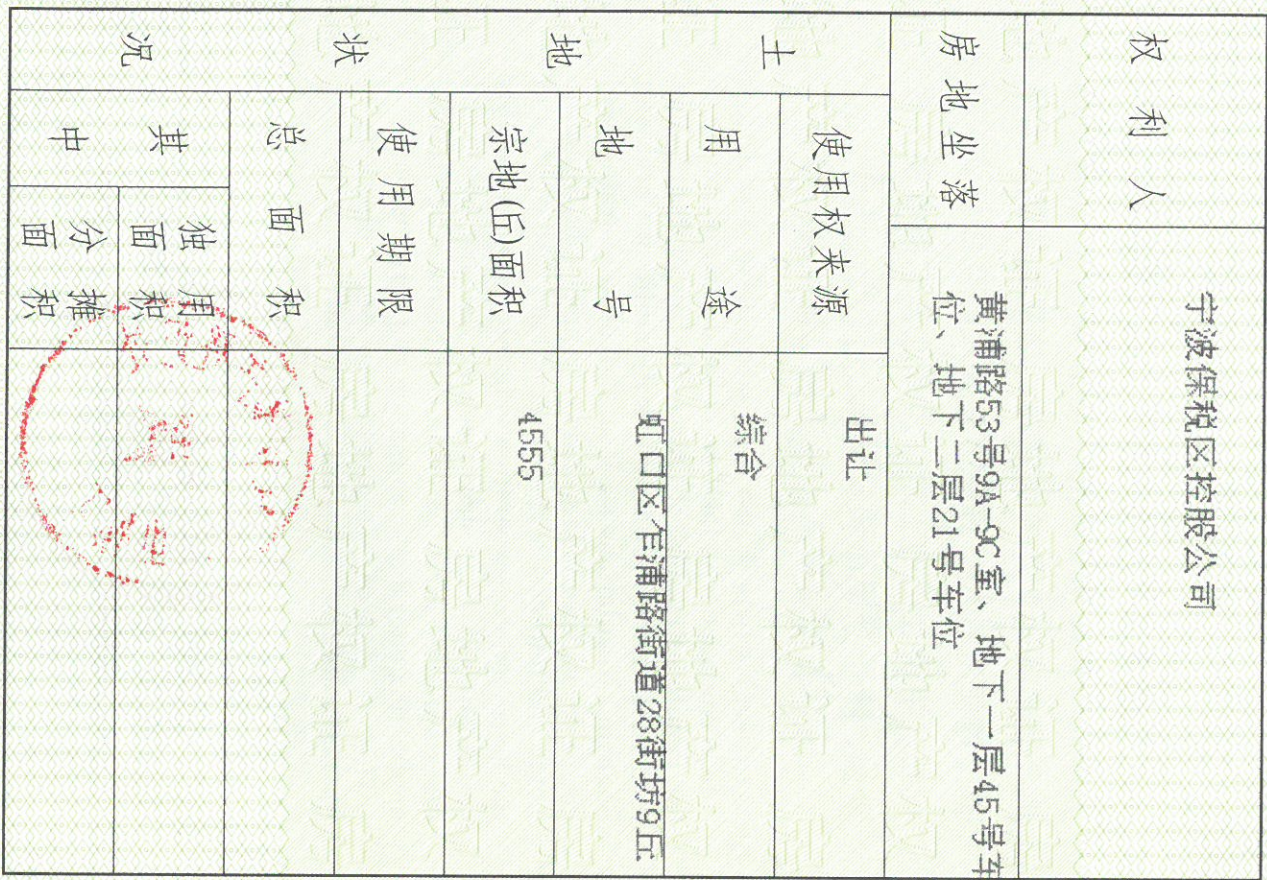 权利人 宁波保税区控股公司
房地坐落 黄浦路53号9A-9C室、地下一层45号车
位、地下二层21号车位
土地状况
使用权来源 出让
用途 综合
地号 虹口区乍浦路街道28街坊9丘
宗地(丘)面积 4555
使用期限
总面积
其中
独用面积
分摊面积